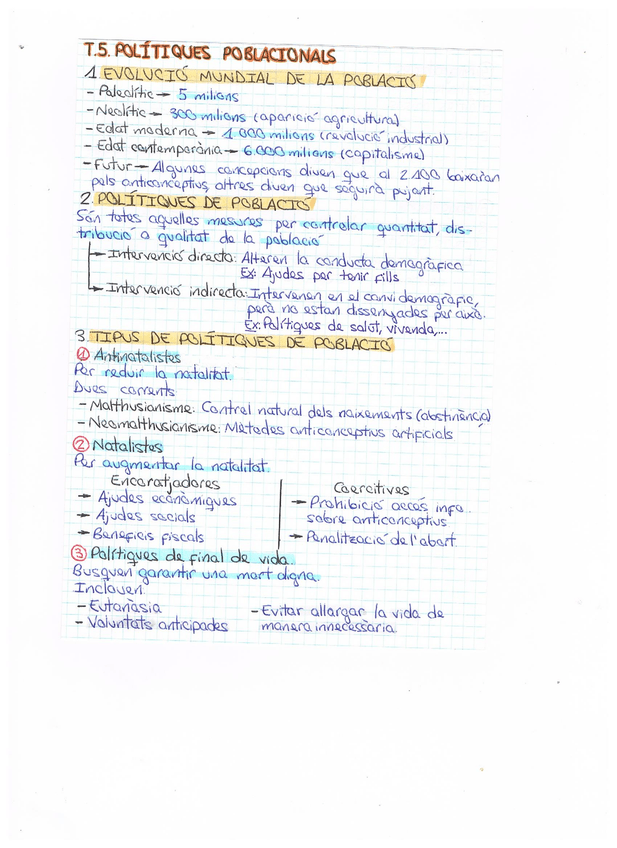 T.5. POLÍTIQUES POBLACIONALS
1. EVOLUCIÓ MUNDIAL DE LA POBLACIÓ
- Paleolític → 5 milions
- Neolític → 300 milions (aparició agricultura)
- Edat moderna → 1 000 milions (revolució industrial)
- Edat contemporània → 6.000 milions (capitalisme)
- Futur → Algunes concepcions diuen que al 2.100 baixaran
pels anticonceptius, altres diuen que seguirà pujant.
2. POLÍTIQUES DE POBLACIÓ
Són totes aquelles mesures per controlar quantitat, dis-
tribució o qualitat de la població
→ Intervenció directa: Alteren la conducta demogràfica
Ex: Ajudes per tenir fills
→ Intervenció indirecta: Intervenen en el canvi demogràfic,
però no estan dissenyades per això.
Ex: Polítiques de salut, vivenda,...
3. TIPUS DE POLÍTIQUES DE POBLACIÓ
① Antinatalistes
Per reduir la natalitat.
Dues corrents
- Malthusianisme: Control natural dels naixements (abstinència)
- Neomalthusianisme: Mètodes anticonceptius artificials
② Natalistes
Per augmentar la natalitat.
Encoratjadores
→ Ajudes econòmiques
→ Ajudes socials
→ Beneficis fiscals
Coercitives
→ Prohibició accés info.
sobre anticonceptius
→ Penalització de l'abort.
③ Polítiques de final de vida.
Busquen garantir una mort digna.
Inclouen:
- Eutanàsia
- Voluntats anticipades
- Evitar allargar la vida de
manera innecessària.